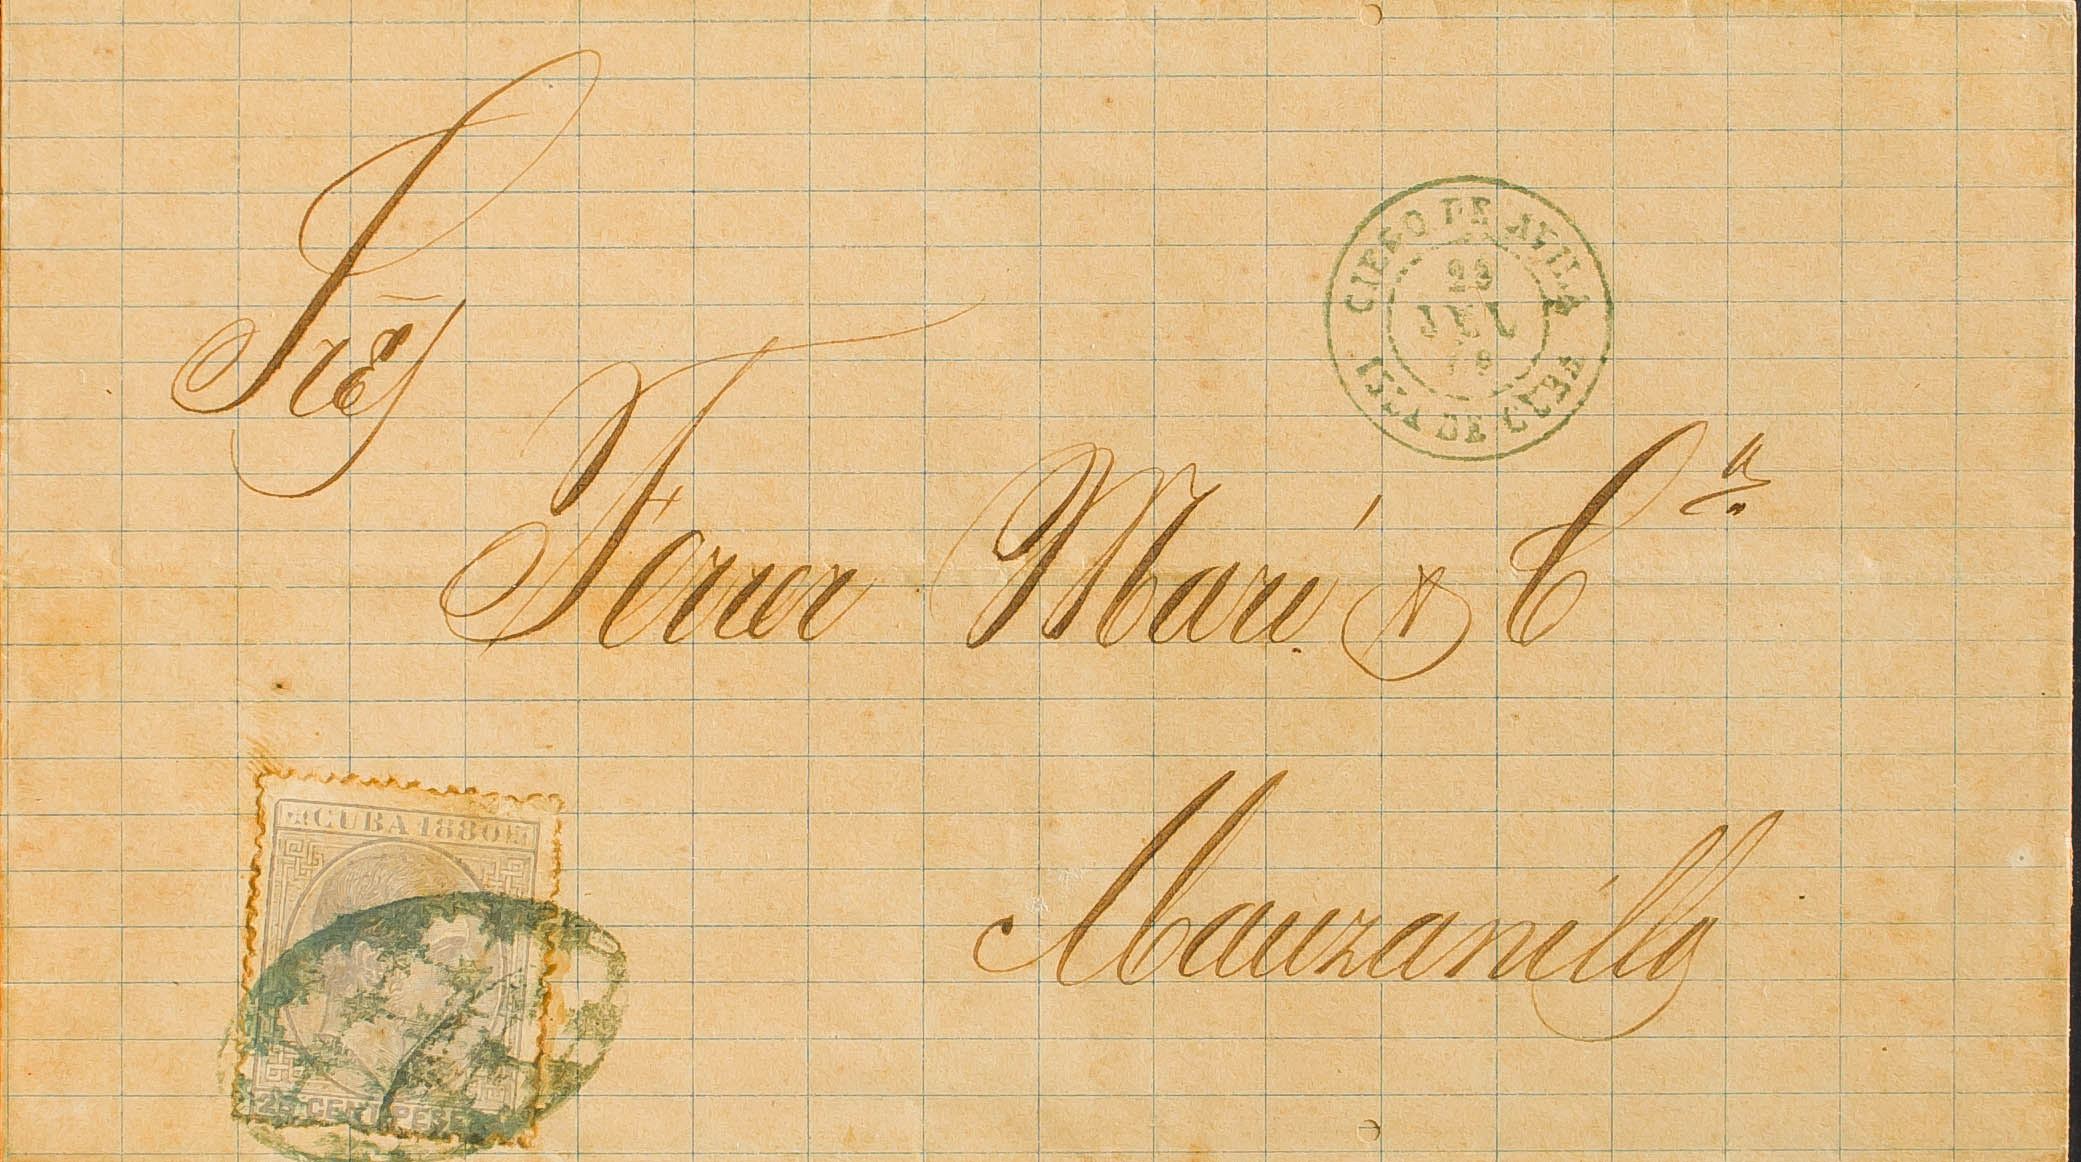 Sres
CIEGO DE AVILA
23
JUL
ISLA DE CUBA
Ferrer Marí & Cª
Manzanillo
CUBA 1880
25 CENT. PESE